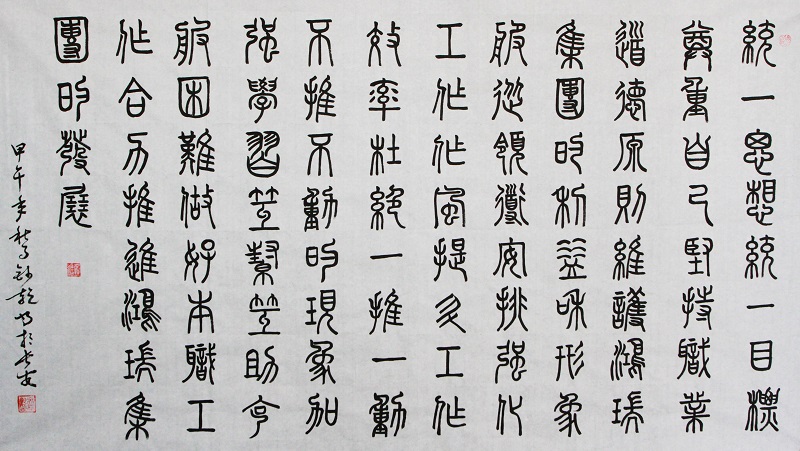 統一思想統一目標
尊重自己堅持職業
道德原則維護鴻瑞
集團的利益和形象
服從領導安排強化
工作作風提工作
效率杜絕一推一動
不推不動的現象加
強學習互幫互助克
服困難做好本職工
作合力推進鴻瑞集
團的發展
甲午年秋於長安